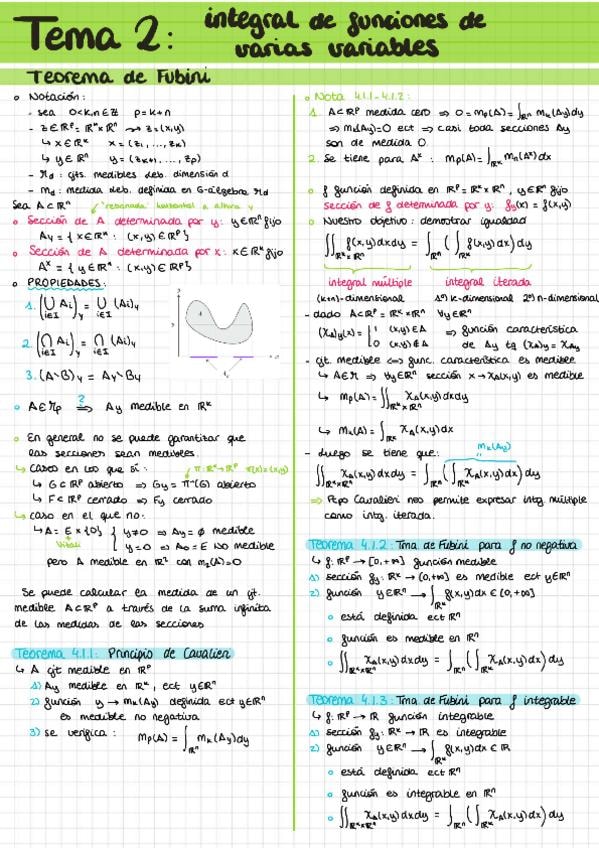 Tema 2: integral de funciones de
varias variables
Teorema de Fubini
○ Notación:
- sea 0<k,n∈ℤ p=k+n
- z∈ℝᵖ=ℝᵏ×ℝⁿ ⟿ z=(x,y)
↳ x∈ℝᵏ x=(z₁, ..., zₖ)
↳ y∈ℝⁿ y=(zₖ₊₁, ..., zₚ)
- 𝓜d: cjts. medibles leb. dimensión d
- md: medida leb. definida en σ-álgebra 𝓜d
Sea A⊂ℝⁿ "rebanada" horizontal a altura y
○ Sección de A determinada por y: y∈ℝⁿ fijo
Ay = {x∈ℝᵏ : (x,y)∈ℝᵖ}
○ Sección de A determinada por x: x∈ℝᵏ fijo
Aˣ = {y∈ℝⁿ : (x,y)∈ℝᵖ}
○ PROPIEDADES:
1. (⋃i∈I Ai)y = ⋃i∈I (Ai)y
2. (⋂i∈I Ai)y = ⋂i∈I (Ai)y
3. (A\B)y = Ay\By
A
y
Ay
○ A∈𝓜p ⟹? Ay medible en ℝᵏ
○ En general no se puede garantizar que
las secciones sean medibles.
↳ casos en los que sí: π:ℝᵏ→ℝᵖ π(x)=(x,y)
↳ G⊂ℝᵖ abierto ⟹ Gy=π⁻¹(G) abierto
↳ F⊂ℝᵖ cerrado ⟹ Fy cerrado
↳ caso en el que no:
↳ A = E×{0} { y≠0 ⟹ Ay=∅ medible
Vitali y=0 ⟹ A₀=E NO medible
pero A medible en ℝ² con m₂(A)=0
Se puede calcular la medida de un cjt.
medible A⊂ℝᵖ a través de la suma infinita
de las medidas de las secciones
Teorema 4.1.1: Principio de Cavalieri
↳ A cjt medible en ℝᵖ
1) Ay medible en ℝᵏ, ect y∈ℝⁿ
2) función y → mₖ(Ay) definida ect y∈ℝⁿ
es medible no negativa
3) se verifica: mp(A) = ∫ℝⁿ mₖ(Ay)dy
○ Nota 4.1.1-4.1.2:
1. A⊂ℝᵖ medida cero ⟹ 0=mp(A)=∫ℝⁿ mₖ(Ay)dy
⟹ mₖ(Ay)=0 ect ⟹ casi toda secciones Ay
son de medida 0.
2. Se tiene para Aˣ: mp(A)=∫ℝᵏ mn(Aˣ)dx
○ f función definida en ℝᵖ=ℝᵏ×ℝⁿ, y∈ℝⁿ fijo
sección de f determinada por y: fy(x)=f(x,y)
○ Nuestro objetivo: demostrar igualdad
∬ℝᵏ×ℝⁿ f(x,y)dxdy = ∫ℝⁿ (∫ℝᵏ f(x,y)dx) dy
integral múltiple integral iterada
(k+n)-dimensional 1º) k-dimensional 2º) n-dimensional
- dado A⊂ℝᵖ=ℝᵏ×ℝⁿ ∀y∈ℝⁿ
(χA)y(x) = { 1 (x,y)∈A ⟹ función característica
0 (x,y)∉A de Ay tq (χA)y=χAy
- cjt. medible ⟺ func. característica es medible
↳ A∈𝓜 ⟹ ∀y∈ℝⁿ sección x→χA(x,y) es medible
↳ mp(A)=∬ℝᵏ×ℝⁿ χA(x,y)dxdy
↳ mₖ(A)=∫ℝᵏ χA(x,y)dx
- Luego se tiene que: mₖ(Ay)
∬ℝᵏ×ℝⁿ χA(x,y)dxdy = ∫ℝⁿ (∫ℝᵏ χA(x,y)dx) dy
⟹ Ppo Cavalieri nos permite expresar intg múltiple
como intg. iterada.
Teorema 4.1.2: Tma. de Fubini para f no negativa
↳ f: ℝᵖ → [0,+∞] función medible
1) sección fy: ℝᵏ → [0,+∞] es medible ect y∈ℝⁿ
2) función y∈ℝⁿ → ∫ℝᵏ f(x,y)dx ∈ [0,+∞]
○ está definida ect ℝⁿ
○ función es medible en ℝⁿ
○ ∬ℝᵏ×ℝⁿ χA(x,y)dxdy = ∫ℝⁿ (∫ℝᵏ χA(x,y)dx) dy
Teorema 4.1.3: Tma. de Fubini para f integrable
↳ f: ℝᵖ → ℝ función integrable
1) sección fy: ℝᵏ → ℝ es integrable
2) función y∈ℝⁿ → ∫ℝᵏ f(x,y)dx ∈ ℝ
○ está definida ect ℝⁿ
○ función es integrable en ℝⁿ
○ ∬ℝᵏ×ℝⁿ χA(x,y)dxdy = ∫ℝⁿ (∫ℝᵏ χA(x,y)dx) dy